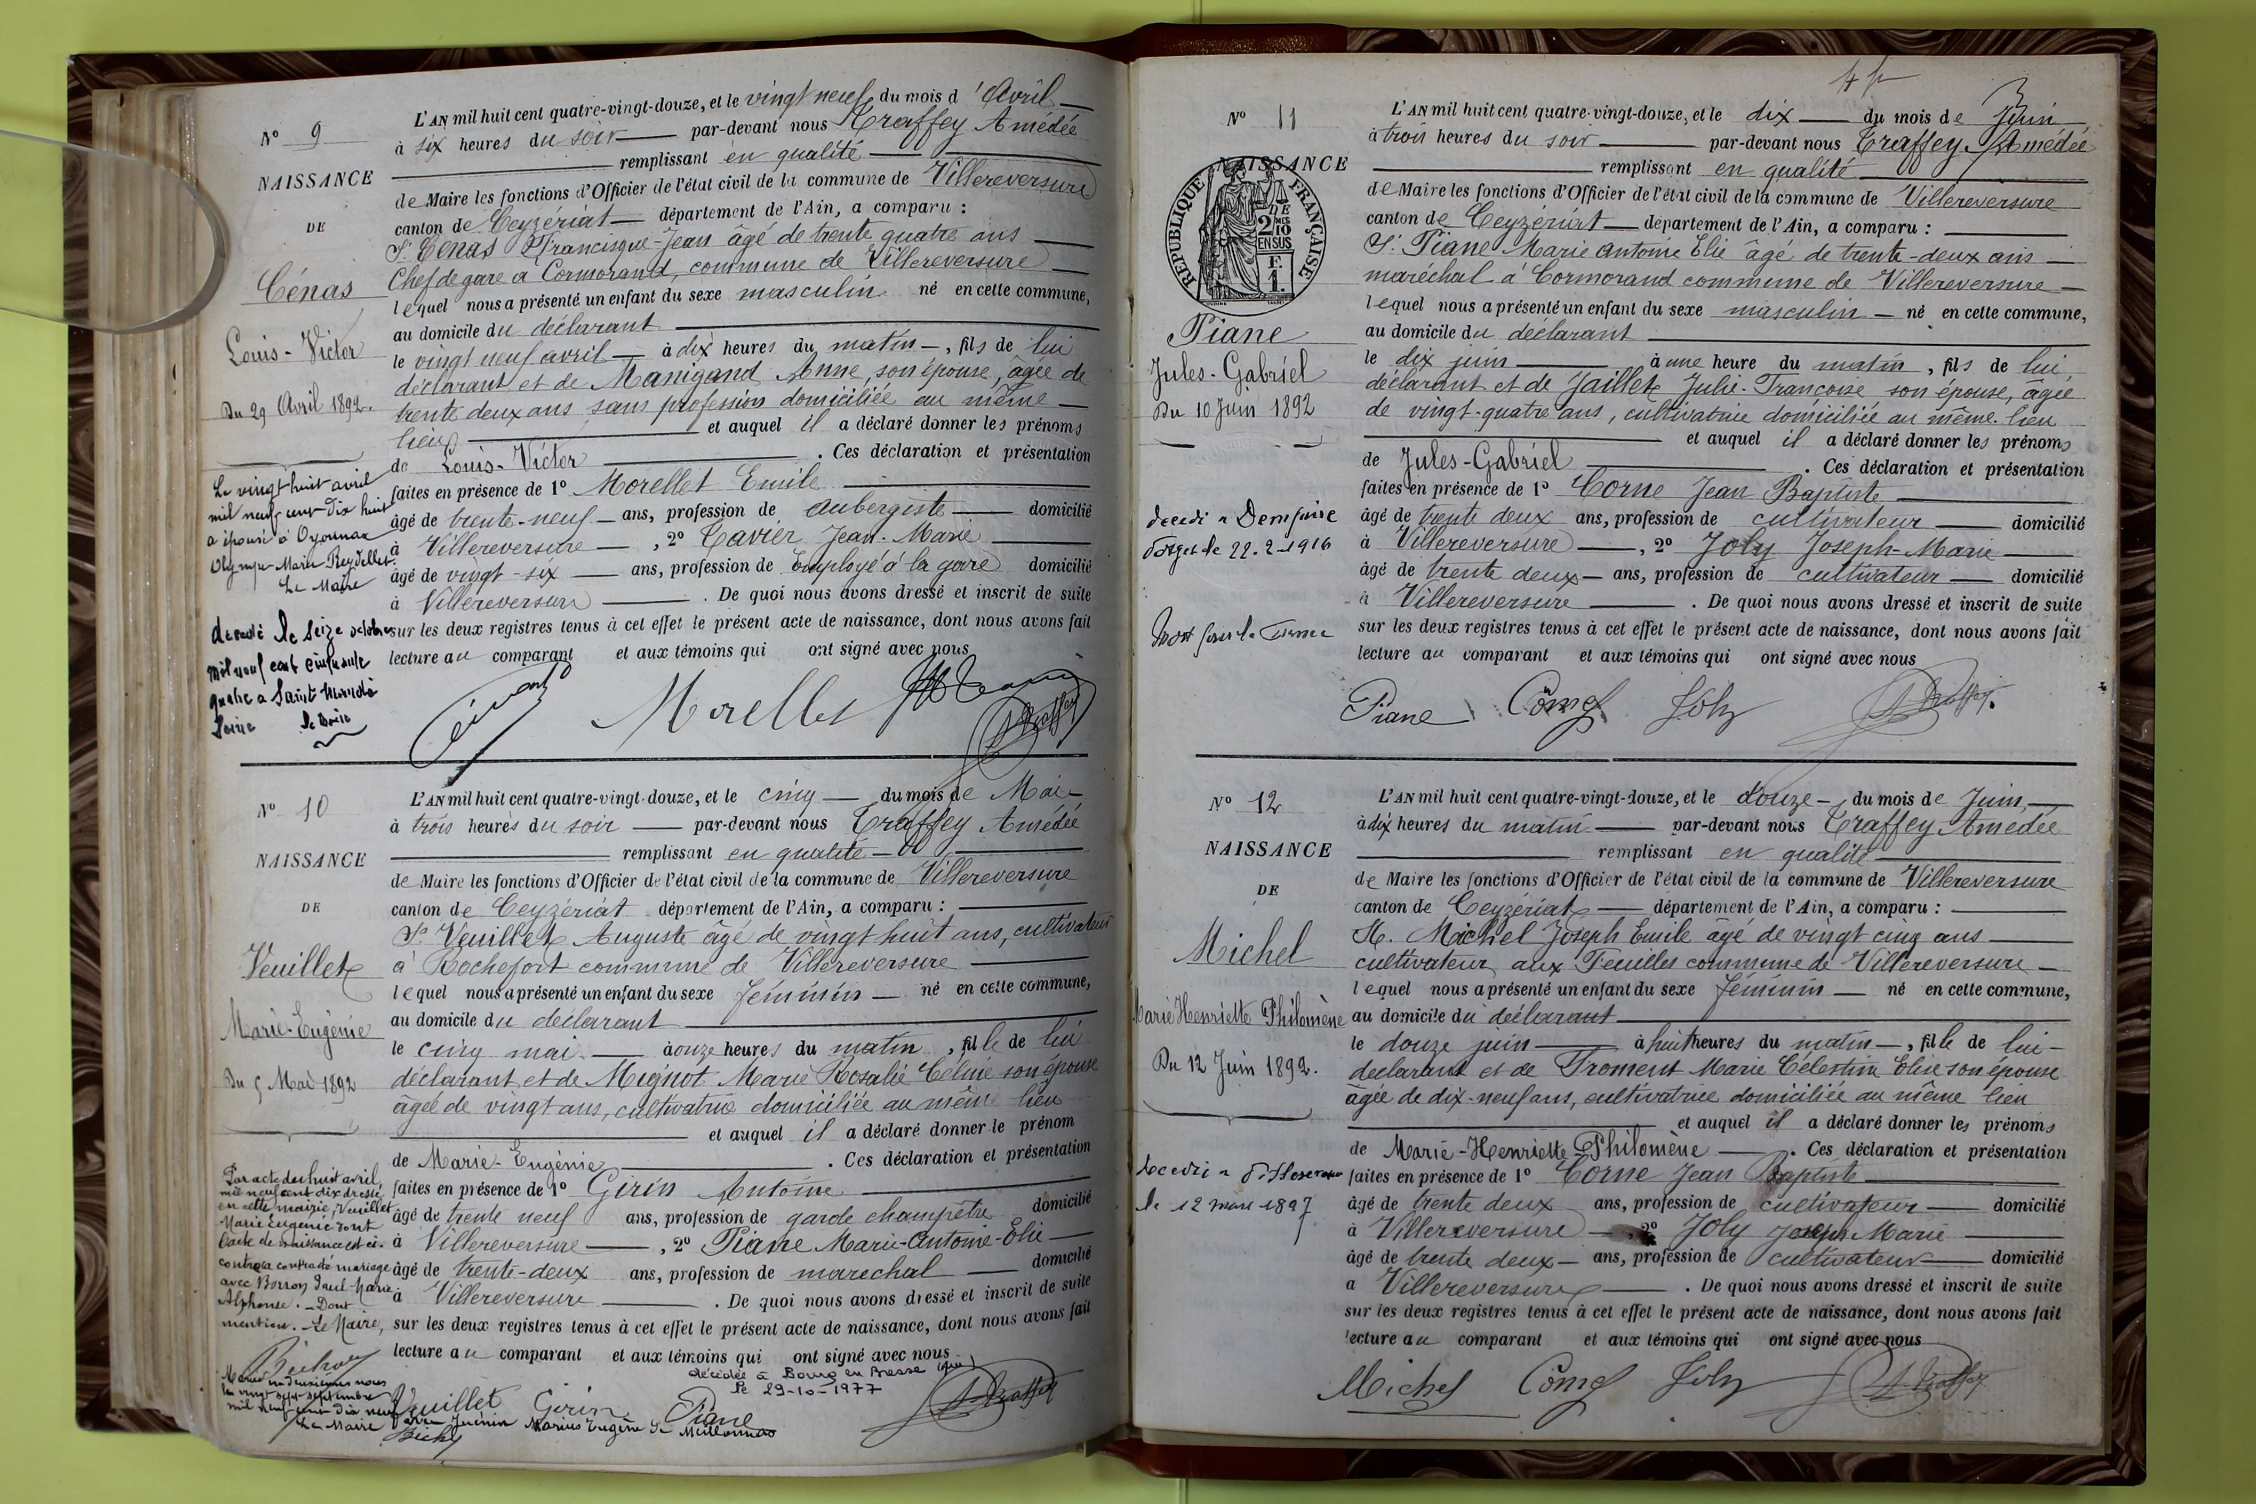 Nº 9
NAISSANCE
DE
Cénas
Louis-Victor
Du 29 Avril 1892.
Le vingt huit avril
mil neuf cent dix huit
a épousé à Oyonnax
Olympe Marie Reydellet
Le Maire
décédé le seize octobre
mil neuf cent cinquante
quatre a Saint Mandé
Seine le Maire
L'AN mil huit cent quatre-vingt-douze, et le vingt neuf du mois d'Avril
à six heures du soir par-devant nous Traffey Amédée
remplissant en qualité
de Maire les fonctions d'Officier de l'état civil de la commune de Villereversure
canton de Ceyzériat département de l'Ain, a comparu :
Sr. Cénas Francisque-Jean âgé de trente quatre ans
Chef de gare à Cormorand, commune de Villereversure
lequel nous a présenté un enfant du sexe masculin né en cette commune,
au domicile du déclarant
le vingt neuf avril à dix heures du matin, fils de lui
déclarant et de Manigand Anne, son épouse, âgée de
trente deux ans sans profession domiciliée au même
lieu et auquel il a déclaré donner les prénoms
de Louis-Victor. Ces déclaration et présentation
faites en présence de 1º Morellet Emile
âgé de trente-neuf ans, profession de aubergiste domicilié
à Villereversure, 2º Tavier Jean-Marie
âgé de vingt-six ans, profession de Employé à la gare domicilié
à Villereversure. De quoi nous avons dressé et inscrit de suite
sur les deux registres tenus à cet effet le présent acte de naissance, dont nous avons fait
lecture au comparant et aux témoins qui ont signé avec nous
Cénas Morellet A Traffey
Nº 10
NAISSANCE
DE
Veuillet
Marie-Eugénie
Du 5 Mai 1892
Par acte du huit avril,
mil neuf cent dix dressé
en cette mairie, Veuillet
Marie Eugénie dont
l'acte de naissance est ci-
contre a contracté mariage
avec Borron Paul-Marie
Alphonse. - Dont
mention. - Le Maire,
Mariée en deuxièmes noces
le vingt sept septembre
mil neuf cent dix neuf
avec Juénin Marius Eugène à Meillonnas
Le Maire
L'AN mil huit cent quatre-vingt-douze, et le cinq du mois de Mai
à trois heures du soir par-devant nous Traffey Amédée
remplissant en qualité
de Maire les fonctions d'Officier de l'état civil de la commune de Villereversure
canton de Ceyzériat département de l'Ain, a comparu :
Sr. Veuillet Auguste âgé de vingt huit ans, cultivateur
à Rochefort commune de Villereversure
lequel nous a présenté un enfant du sexe féminin né en cette commune,
au domicile du déclarant
le cinq mai à onze heures du matin, fille de lui
déclarant et de Mignot Marie Rosalie Céline son épouse
âgée de vingt ans, cultivatrice domiciliée au même lieu
et auquel il a déclaré donner le prénom
de Marie-Eugénie. Ces déclaration et présentation
faites en présence de 1º Girin Antoine
âgé de trente neuf ans, profession de garde champêtre domicilié
à Villereversure, 2º Piane Marie-Antoine-Elie
âgé de trente-deux ans, profession de maréchal domicilié
à Villereversure. De quoi nous avons dressé et inscrit de suite
sur les deux registres tenus à cet effet le présent acte de naissance, dont nous avons fait
lecture au comparant et aux témoins qui ont signé avec nous
décédée à Bourg en Bresse (Ain)
le 29-10-1977
Veuillet Girin Piane A Traffey
Nº 11
NAISSANCE
RÉPUBLIQUE FRANÇAISE
2 DMES
10
EN SUS
F.
1.
Piane
Jules-Gabriel
Du 10 Juin 1892
décédé a
le 22-2-1916
Mort pour la France
L'AN mil huit cent quatre-vingt-douze, et le dix du mois de Juin
à trois heures du soir par-devant nous Traffey Amédée
remplissant en qualité
de Maire les fonctions d'Officier de l'état civil de la commune de Villereversure
canton de Ceyzériat département de l'Ain, a comparu :
Sr. Piane Marie Antoine Elie âgé de trente-deux ans
maréchal à Cormorand commune de Villereversure
lequel nous a présenté un enfant du sexe masculin né en cette commune,
au domicile du déclarant
le dix juin à une heure du matin, fils de lui
déclarant et de Jaillet Julie-Françoise son épouse, âgée
de vingt-quatre ans, cultivatrice domiciliée au même lieu
et auquel il a déclaré donner les prénoms
de Jules-Gabriel. Ces déclaration et présentation
faites en présence de 1º Corne Jean Baptiste
âgé de trente deux ans, profession de cultivateur domicilié
à Villereversure, 2º Joly Joseph-Marie
âgé de trente deux ans, profession de cultivateur domicilié
à Villereversure. De quoi nous avons dressé et inscrit de suite
sur les deux registres tenus à cet effet le présent acte de naissance, dont nous avons fait
lecture au comparant et aux témoins qui ont signé avec nous
Piane Corne Joly A Traffey
Nº 12
NAISSANCE
DE
Michel
Marie Henriette Philomène
Du 12 Juin 1892.
décédée a
le 12 mars 1897
L'AN mil huit cent quatre-vingt-douze, et le douze du mois de Juin
à dix heures du matin par-devant nous Traffey Amédée
remplissant en qualité
de Maire les fonctions d'Officier de l'état civil de la commune de Villereversure
canton de Ceyzériat département de l'Ain, a comparu :
Michel Joseph Emile âgé de vingt cinq ans
cultivateur aux Feuilles commune de Villereversure
lequel nous a présenté un enfant du sexe féminin né en cette commune,
au domicile du déclarant
le douze juin à huit heures du matin, fille de lui
déclarant et de Froment Marie Célestine Elise son épouse
âgée de dix-neuf ans, cultivatrice domiciliée au même lieu
et auquel il a déclaré donner les prénoms
de Marie-Henriette Philomène. Ces déclaration et présentation
faites en présence de 1º Corne Jean Baptiste
âgé de trente deux ans, profession de cultivateur domicilié
à Villereversure, 2º Joly Joseph Marie
âgé de trente deux ans, profession de cultivateur domicilié
a Villereversure. De quoi nous avons dressé et inscrit de suite
sur les deux registres tenus à cet effet le présent acte de naissance, dont nous avons fait
lecture au comparant et aux témoins qui ont signé avec nous
Michel Corne Joly A Traffey